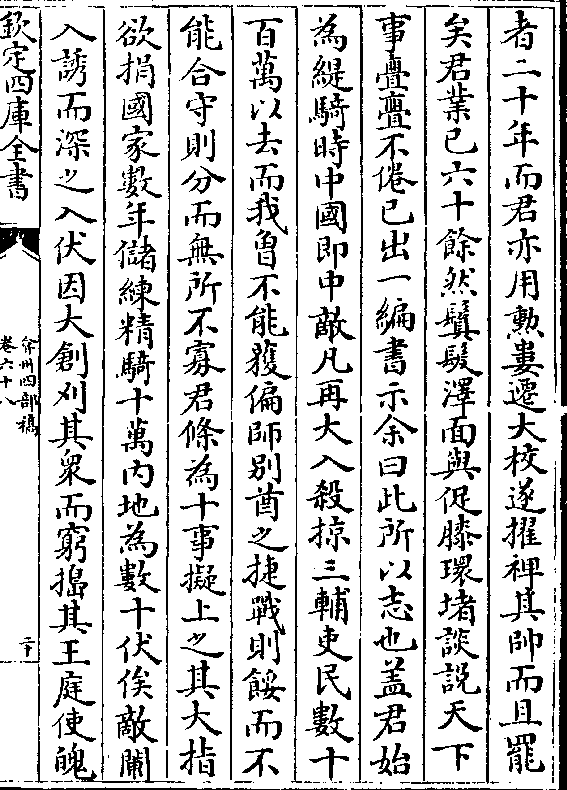 者二十年而君亦用勲婁遷大校遂擢裨其帥而且罷
矣君業已六十餘然鬒髮澤面與促膝環堵談説天下
事亹亹不倦已出一編書示余曰此所以志也盖君始
為緹騎時中國即中敵凡再大入殺掠三輔吏民數十
百萬以去而我曾不能獲偏師别酋之捷戰則餒而不
能合守則分而無所不寡君條為十事擬上之其大指
欲捐國家數年儲練精騎十萬内地為數十伏俟敵闌
入誘而深之入伏因大創刈其衆而窮搗其王庭使醜
欽定四庫全書
弇州四部稿
卷六十八
二十